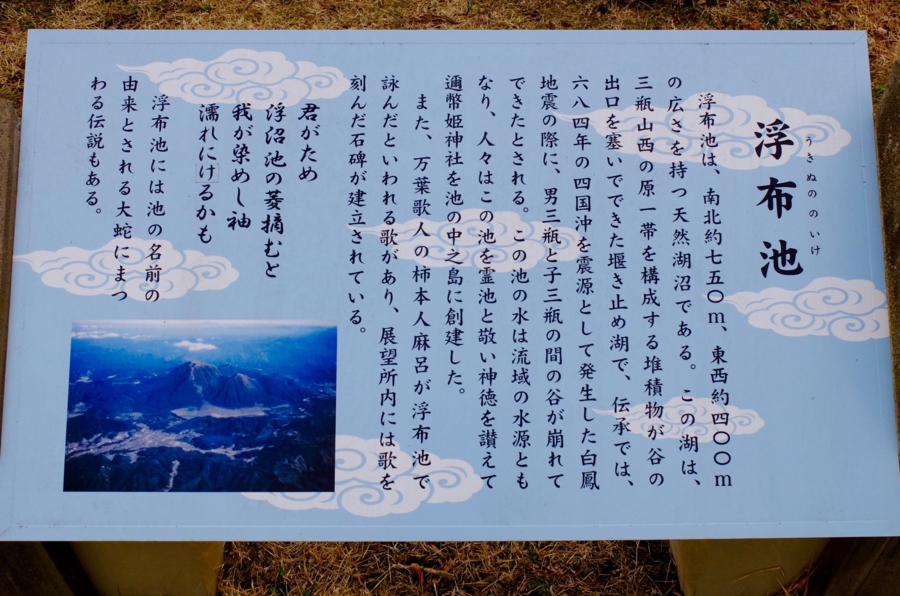 浮布池
うきぬののいけ
浮布池は、南北約七五〇ｍ、東西約四〇〇ｍ
の広さを持つ天然湖沼である。この湖は、
三瓶山西の原一帯を構成する堆積物が谷の
出口を塞いでできた堰き止め湖で、伝承では、
六八四年の四国沖を震源として発生した白鳳
地震の際に、男三瓶と子三瓶の間の谷が崩れて
できたとされる。この池の水は流域の水源とも
なり、人々はこの池を霊池と敬い神徳を讃えて
邇幣姫神社を池の中之島に創建した。
また、万葉歌人の柿本人麻呂が浮布池で
詠んだといわれる歌があり、展望所内には歌を
刻んだ石碑が建立されている。
君がため
浮沼池の菱摘むと
我が染めし袖
濡れにけるかも
浮布池には池の名前の
由来とされる大蛇にまつ
わる伝説もある。